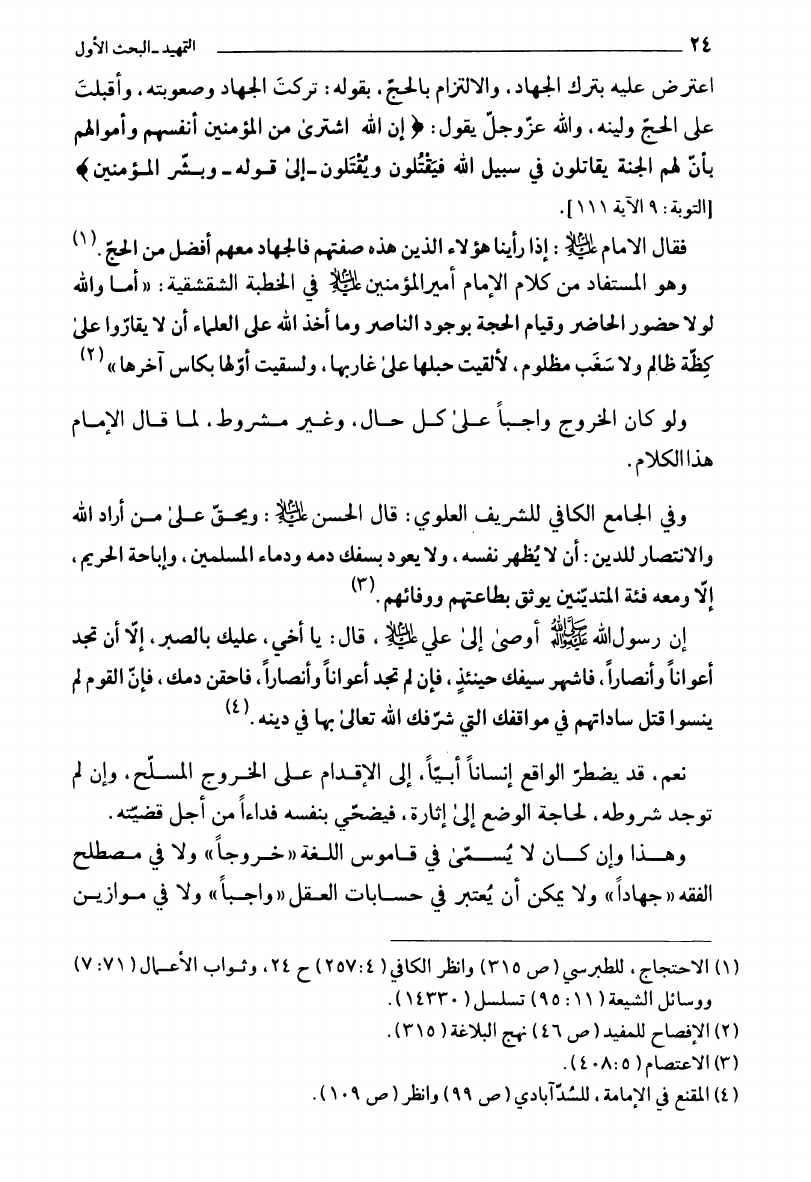 ٢٤ التمهيد ـ البحث الأول
اعترض عليه بترك الجهاد، والالتزام بالحجّ، بقوله: تركتَ الجهاد وصعوبته، وأقبلتَ
على الحجّ ولينه، والله عزّوجلّ يقول: ﴿ إن الله اشترىٰ من المؤمنين أنفسهم وأموالهم
بأنّ لهم الجنة يقاتلون في سبيل الله فيَقْتُلون ويُقْتَلون ـ إلىٰ قوله ـ وبشّر المؤمنين ﴾
[التوبة: ٩ الآية ١١١].
فقال الامام عليه السلام: إذا رأينا هؤلاء الذين هذه صفتهم فالجهاد معهم أفضل من الحجّ.(١)
وهو المستفاد من كلام الإمام أميرالمؤمنين عليه السلام في الخطبة الشقشقية: «أما والله
لولا حضور الحاضر وقيام الحجة بوجود الناصر وما أخذ الله على العلماء أن لا يقارّوا علىٰ
كِظّة ظالم ولا سَغَب مظلوم، لألقيت حبلها علىٰ غاربها، ولسقيت أوّلها بكاس آخرها»(٢)
ولو كان الخروج واجباً علىٰ كل حال، وغير مشروط، لما قال الإمام
هذا الكلام.
وفي الجامع الكافي للشريف العلوي: قال الحسن عليه السلام: ويحقّ علىٰ من أراد الله
والانتصار للدين: أن لا يُظهر نفسه، ولا يعود بسفك دمه ودماء المسلمين، وإباحة الحريم،
إلّا ومعه فئة المتديّنين يوثق بطاعتهم ووفائهم.(٣)
إن رسول الله صلى الله عليه وآله أوصىٰ إلىٰ علي عليه السلام، قال: يا أخي، عليك بالصبر، إلّا أن تجد
أعواناً وأنصاراً، فاشهر سيفك حينئذٍ، فإن لم تجد أعواناً وأنصاراً، فاحقن دمك، فإنّ القوم لم
ينسوا قتل ساداتهم في مواقفك التي شرّفك الله تعالىٰ بها في دينه.(٤)
نعم، قد يضطرّ الواقع إنساناً أبيّاً، إلى الإقدام على الخروج المسلّح، وإن لم
توجد شروطه، لحاجة الوضع إلىٰ إثارة، فيضحّي بنفسه فداءاً من أجل قضيّته.
وهذا وإن كان لا يُسمّىٰ في قاموس اللغة «خروجاً» ولا في مصطلح
الفقه «جهاداً» ولا يمكن أن يُعتبر في حسابات العقل «واجباً» ولا في موازين
(١) الاحتجاج، للطبرسي (ص ٣١٥) وانظر الكافي (٤: ٢٥٧) ح ٢٤، وثواب الأعمال (٧١: ٧)
ووسائل الشيعة (١١: ٩٥) تسلسل (١٤٣٣٠).
(٢) الإفصاح للمفيد (ص ٤٦) نهج البلاغة (٣١٥).
(٣) الاعتصام (٥: ٤٠٨).
(٤) المقنع في الإمامة، للسُدّآبادي (ص ٩٩) وانظر (ص ١٠٩).